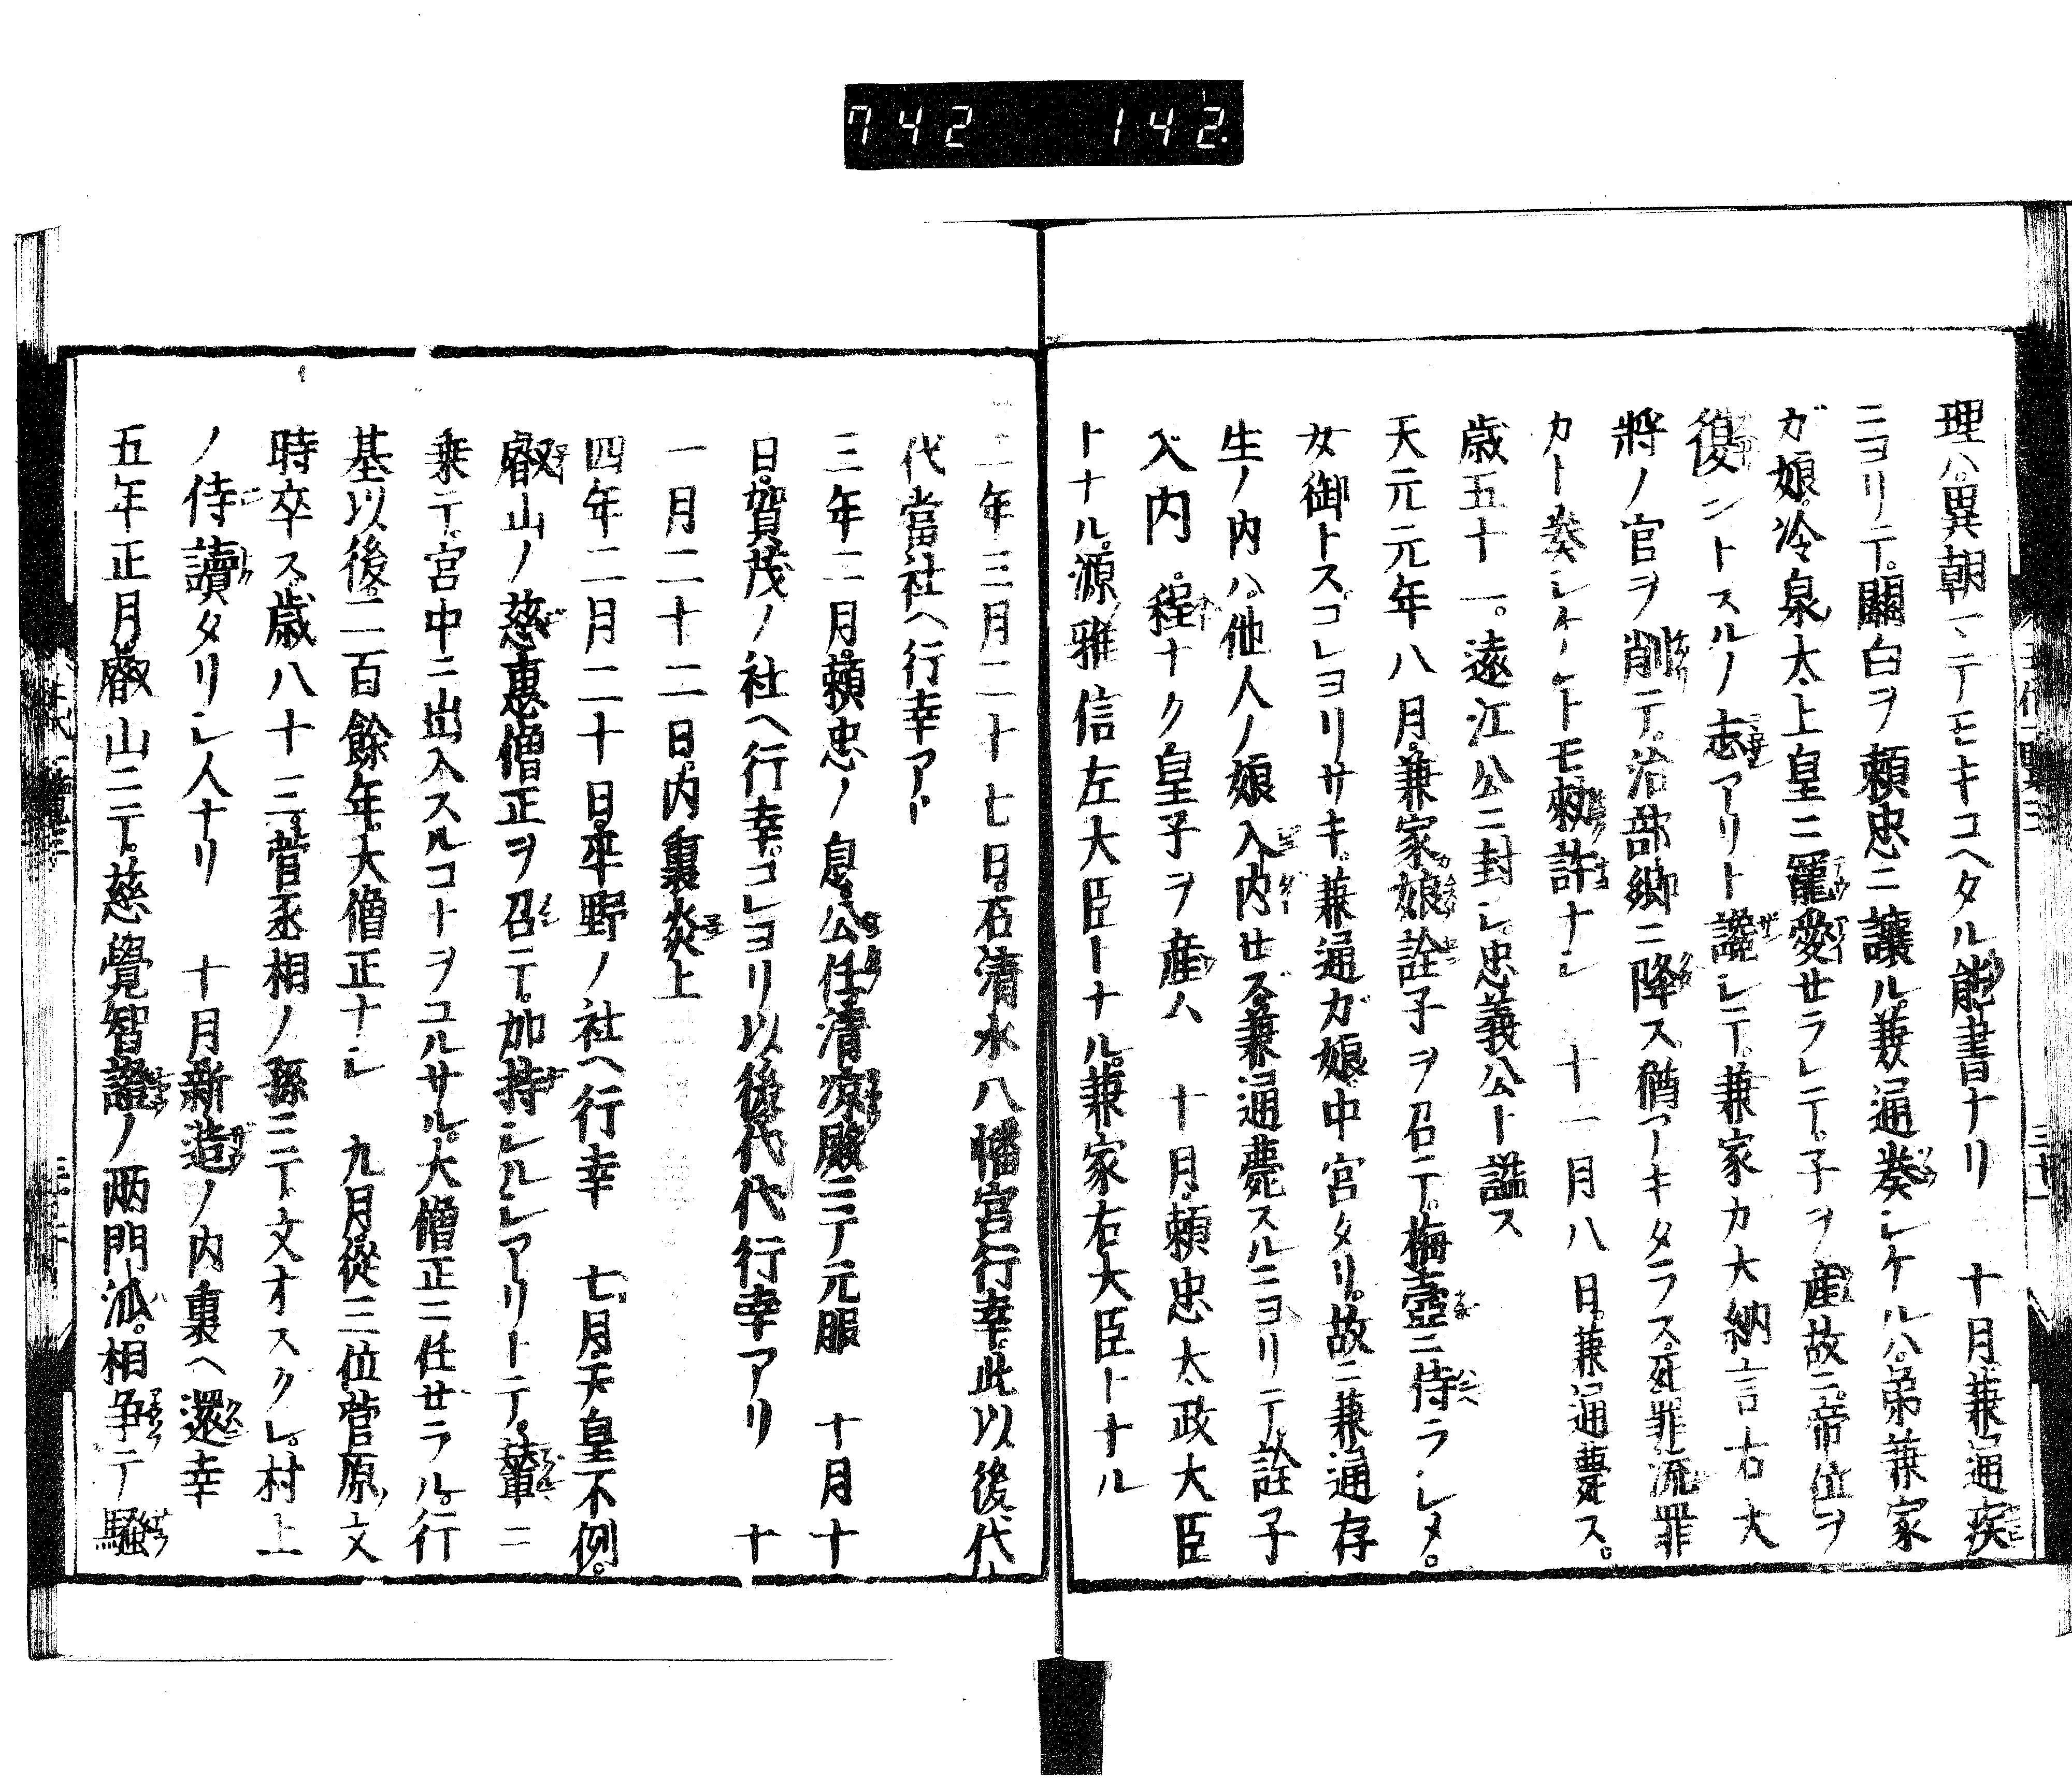 742 142.
理ハ異朝マテモキコヘタル能書ナリ 十月兼通疾
ニヨリテ。關白ヲ頼忠ニ讓ル。兼通奏シケルハ。弟兼家
ガ娘。冷泉太上皇ニ寵愛セラレテ。子ヲ産故ニ。帝位ヲ
復ントスルノ志アリト讒シテ。兼家カ大納言右大
將ノ官ヲ削テ。治部卿ニ降ス。猶アキタラス。死罪流罪
カト奏シケレトモ勅許ナシ 十一月八日。兼通薨ス。
歳五十一。遠江公ニ封シ。忠義公ト諡ス
天元元年八月。兼家娘詮子ヲ召テ。梅壺ニ侍ラシメ。
女御トス。コレヨリサキ。兼通ガ娘。中宮タリ。故ニ兼通存
生ノ内ハ。他人ノ娘入内セス。兼通薨スルニヨリテ。詮子
入内。程ナク皇子ヲ産ム 十月。頼忠太政大臣
トナル。源雅信左大臣トナル。兼家右大臣トナル
二年三月二十七日。石清水八幡宮行幸。此以後。代
代當社ヘ行幸アリ
三年二月。頼忠ノ息公任清凉殿ニテ元服 十月十
日。賀茂ノ社ヘ行幸。コレヨリ以後代代行幸アリ 十
一月二十二日。内裏炎上
四年二月二十日。平野ノ社ヘ行幸 七月。天皇不例。
叡山ノ慈惠僧正ヲ召テ。加持シルシアリトテ。輦ニ
乗テ。宮中ニ出入スルコトヲユルサル。大僧正ニ任セラル。行
基以後。二百餘年。大僧正ナシ 九月。從三位菅原文
時卒ス。歳八十三。菅丞相ノ孫ニテ。文オスクレ。村上
ノ侍讀タリシ人ナリ 十月新造ノ内裏ヘ還幸
五年正月。叡山ニテ。慈覺智證ノ兩門派。相争テ騒